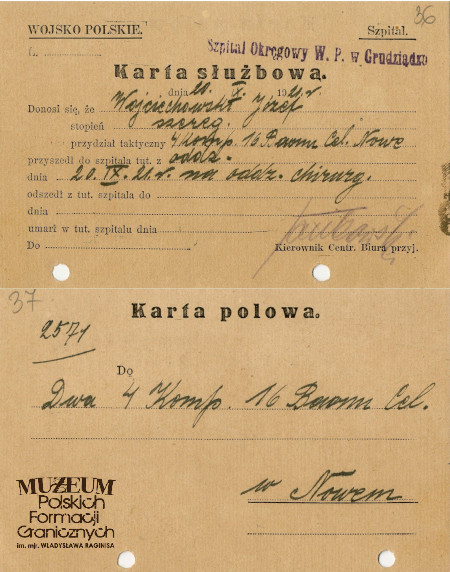 36
WOJSKO POLSKIE.
Szpital.
L.
Szpital Okręgowy W. P. w Grudziądzu
Karta służbowa.
dnia 20. IX. 1921 r.
Donosi się, że Wojciechowski Józef
stopień szereg.
przydział taktyczny 4 Komp. 16 Baonu Cel. Nowe
przyszedł do szpitala tut. z oddz.
dnia 20. IX. 21. r. na oddz. chirurg.
odszedł z tut. szpitala do
dnia
umarł w tut. szpitalu dnia
Do
Kierownik Centr. Biura przyj.
37
Karta polowa.
2571
Do
Dwa 4 Komp. 16 Baonu Cel.
w Nowem
MUZEUM
Polskich
Formacji
Granicznych
im. mjr. WŁADYSŁAWA RAGINISA